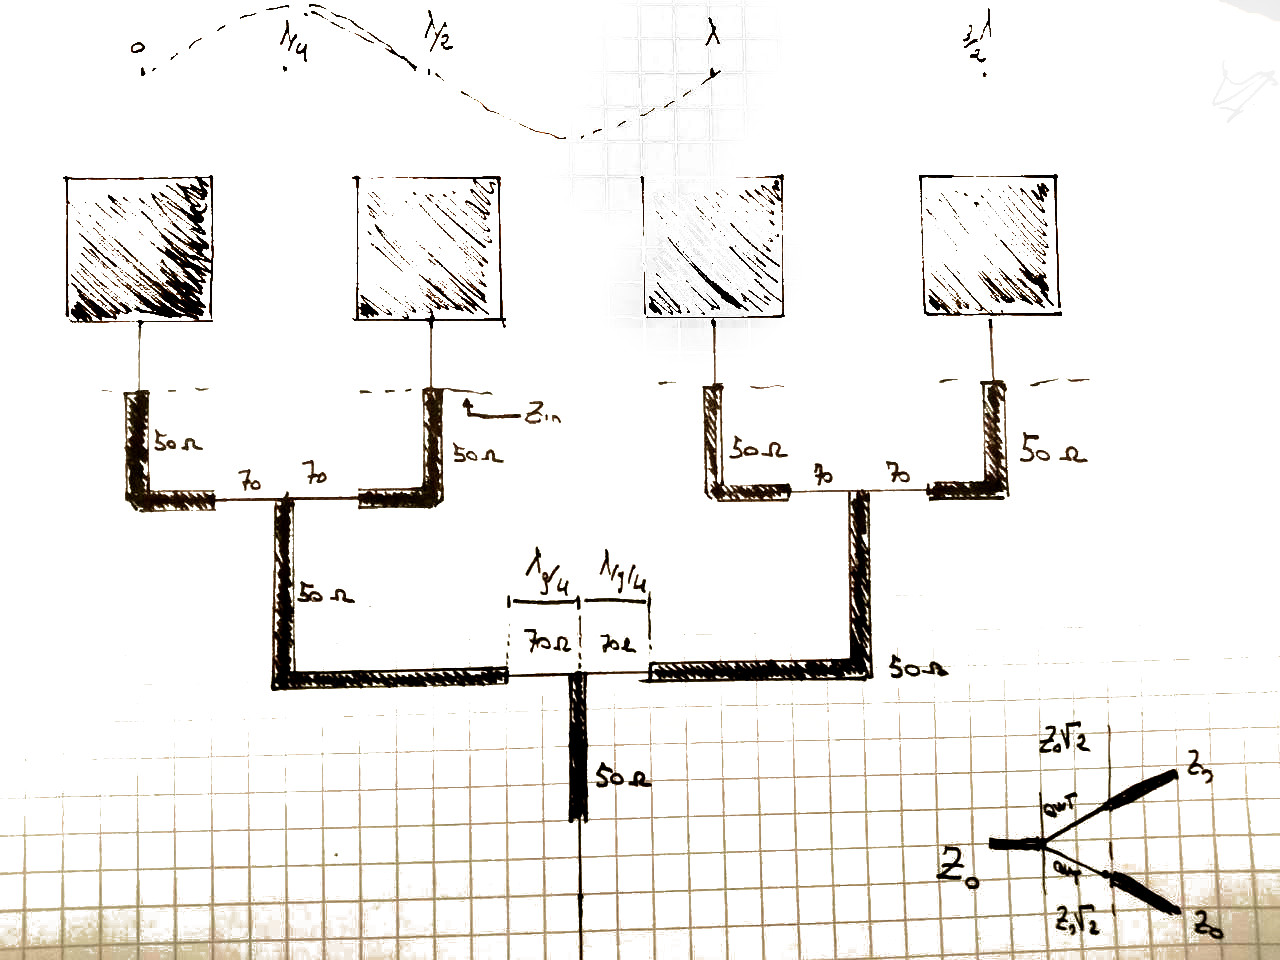 0
λ/4
λ/2
λ
3/2 λ
Zin
50Ω
50Ω
50Ω
50Ω
70
70
70
70
50Ω
λg/4
λg/4
70Ω
70Ω
50Ω
50Ω
Z₀√2
Z₀
QWT
Z₀
QWT
Z₀√2
Z₀